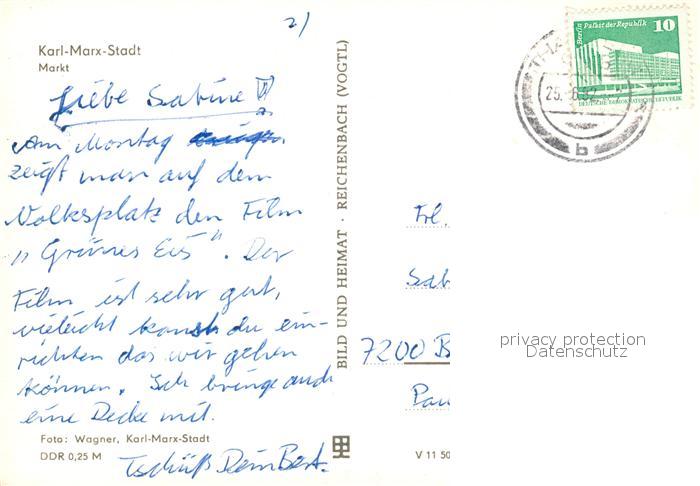 2)
Karl-Marx-Stadt
Markt
Liebe Sabine
am Montag
zeigt man auf dem
Volksplatz den Film
„Grünes Eis". Der
Film ist sehr gut,
vieleicht kanst du ein-
richten das wir gehen
können. Ich bringe auch
eine Decke mit.
Foto: Wagner, Karl-Marx-Stadt
DDR 0,25 M
Tschüß Dein Bert.
BILD UND HEIMAT · REICHENBACH (VOGTL)
V 11 50
Berlin Palast der Republik
10
DEUTSCHE DEMOKRATISCHE REPUBLIK
b
Frl.
Sab
7200 B
Pau
privacy protection
Datenschutz